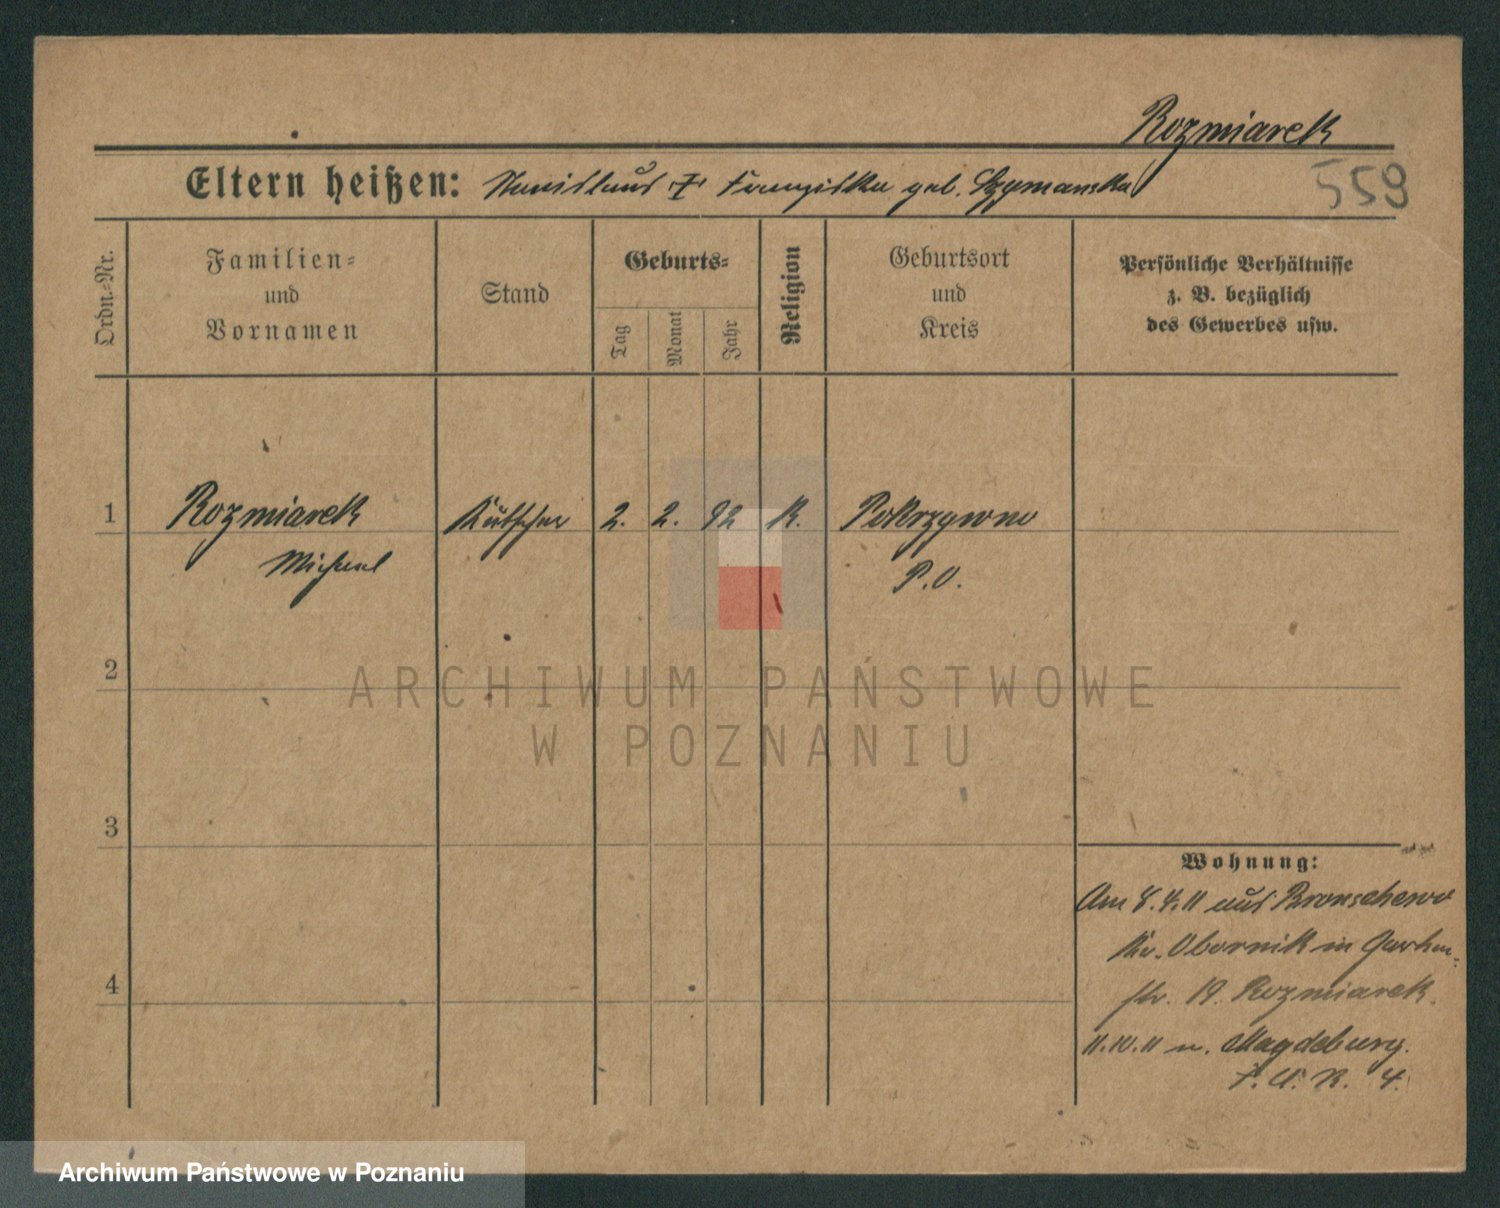 Rozmiarek
559
Eltern heißen: Stanislaus Franziska geb. Szymanska
Ordn.-Nr.
Familien-
und
Vornamen
Stand
Geburts-
Tag
Monat
Jahr
Religion
Geburtsort
und
Kreis
Persönliche Verhältnisse
z. B. bezüglich
des Gewerbes usw.
1 Rozmiarek Kutscher 2. 2. 92 K. Pokrzywno
Michael P.O.
2
3
4
ARCHIWUM PAŃSTWOWE
W POZNANIU
Wohnung:
Am 8.4.11 aus Bronschewo
Kr. Obornik in Garten-
str. 19. Rozmiarek.
11.10.11 n. Magdeburg.
4.
Archiwum Państwowe w Poznaniu